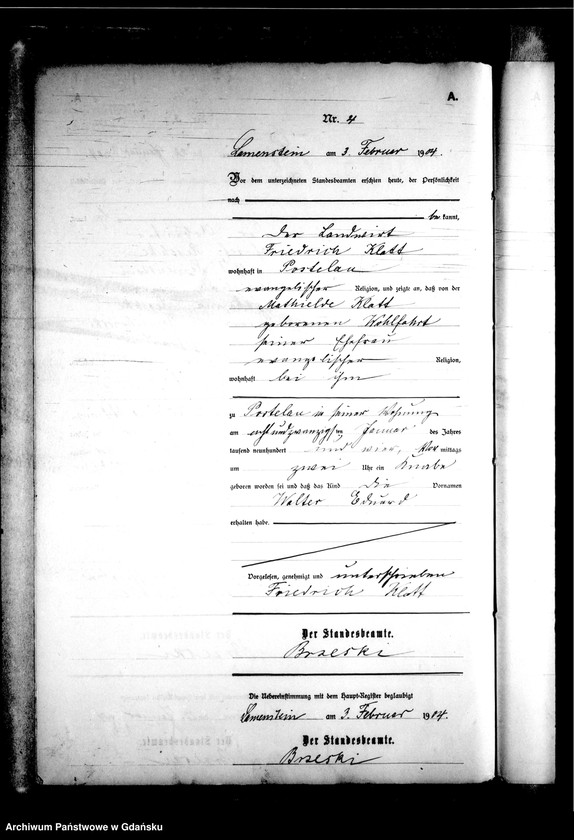 A.
Nr. 4
Lamenstein am 3. Februar 1904.
Vor dem unterzeichneten Standesbeamten erschien heute, der Persönlichkeit
nach
be kannt,
der Landwirt
Friedrich Klatt
wohnhaft in Postelau
evangelischer Religion, und zeigte an, daß von der
Mathielde Klatt
geborenen Wohlfahrt
seiner Ehefrau
evangelischer Religion,
wohnhaft bei ihm
zu Postelau in seiner Wohnung
am achtundzwanzigsten Januar des Jahres
tausend neunhundert und vier, Vor mittags
um zwei Uhr ein Knabe
geboren worden sei und daß das Kind die Vornamen
Walter Eduard
erhalten habe.
Vorgelesen, genehmigt und unterschrieben
Friedrich Klatt
Der Standesbeamte.
Brzeski
Die Uebereinstimmung mit dem Haupt-Register beglaubigt
Lamenstein am 3. Februar 1904.
Der Standesbeamte.
Brzeski
Archiwum Państwowe w Gdańsku